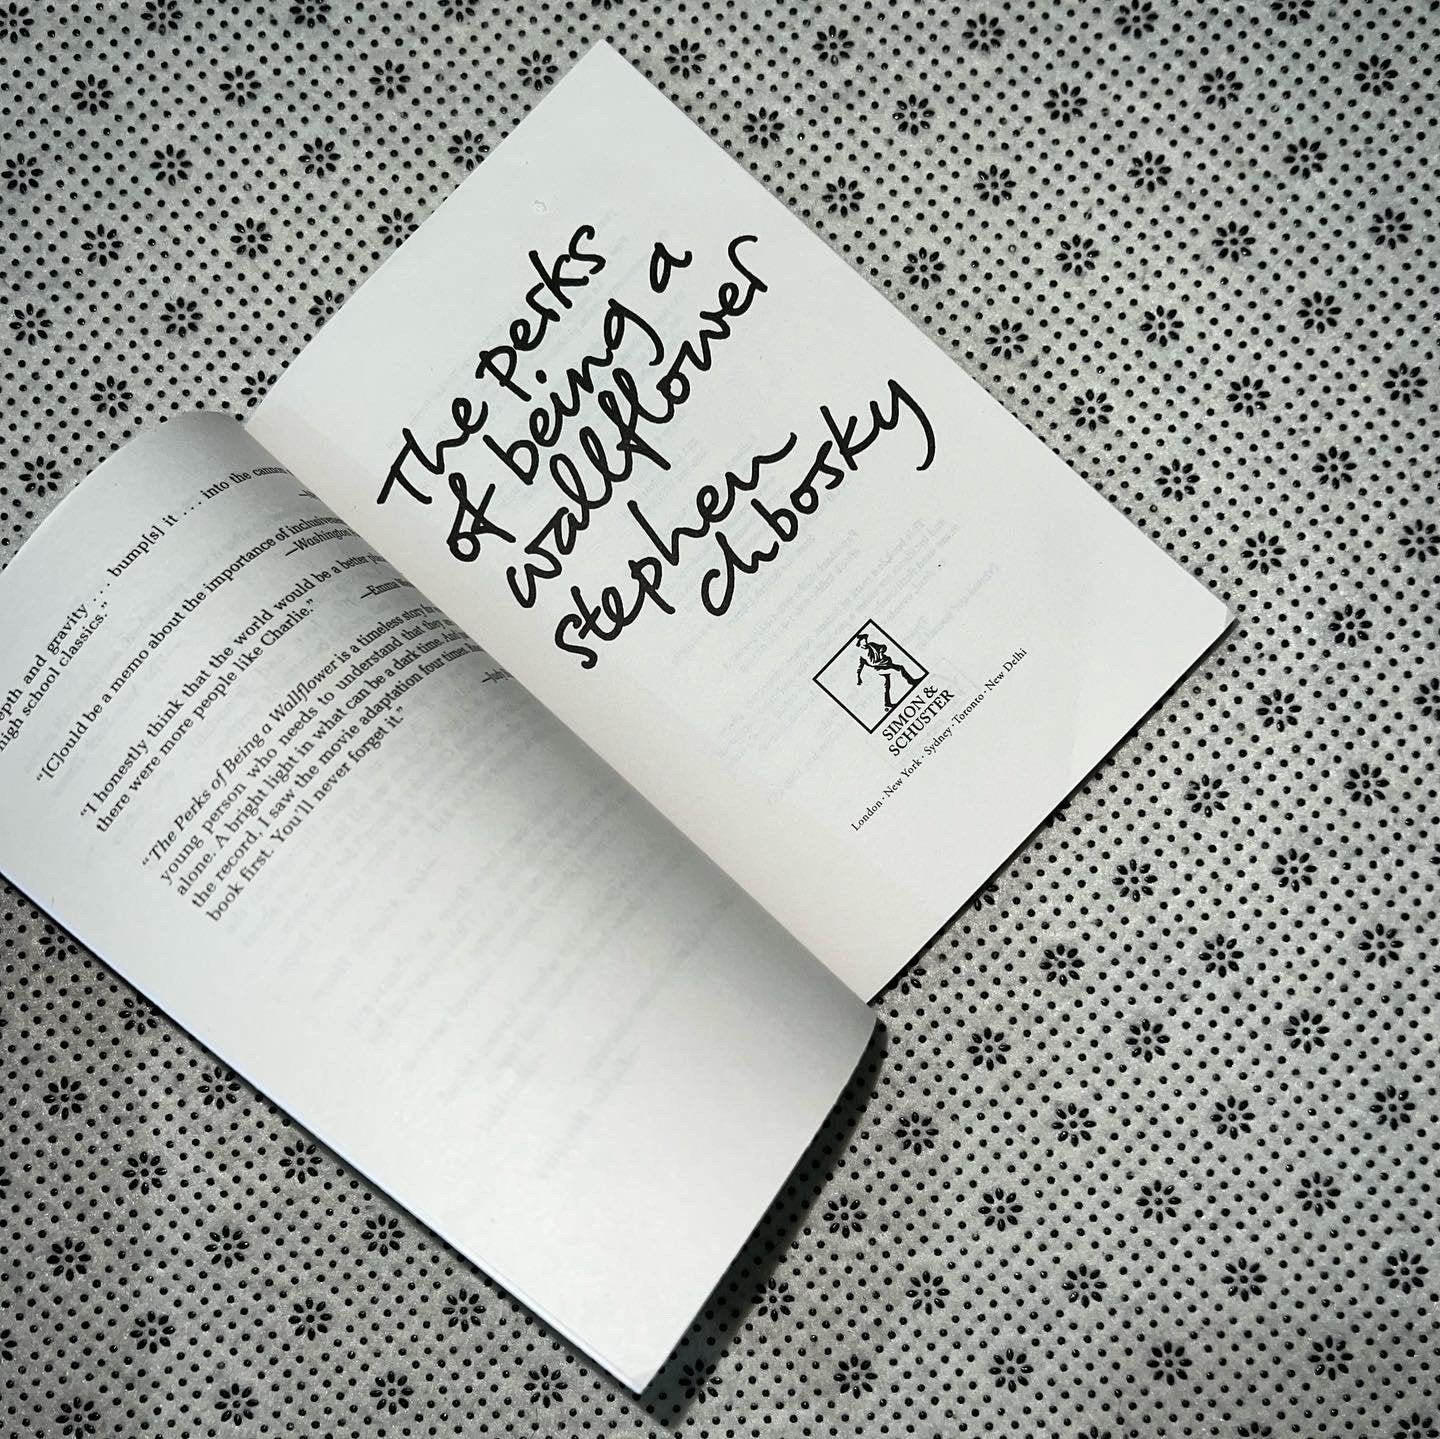 epth and gravity . . . bump[s] it . . . into the cannon
high school classics.”
“[C]ould be a memo about the importance of inclusiveness
—Washington
“I honestly think that the world would be a better
there were more people like Charlie.”
—Emma
“The Perks of Being a Wallflower is a timeless story for
young person who needs to understand that they
alone. A bright light in what can be a dark time. And
the record, I saw the movie adaptation four times.
book first. You’ll never forget it.”
The perks
of being a
wallflower
stephen
chbosky
SIMON &
SCHUSTER
London · New York · Sydney · Toronto · New Delhi